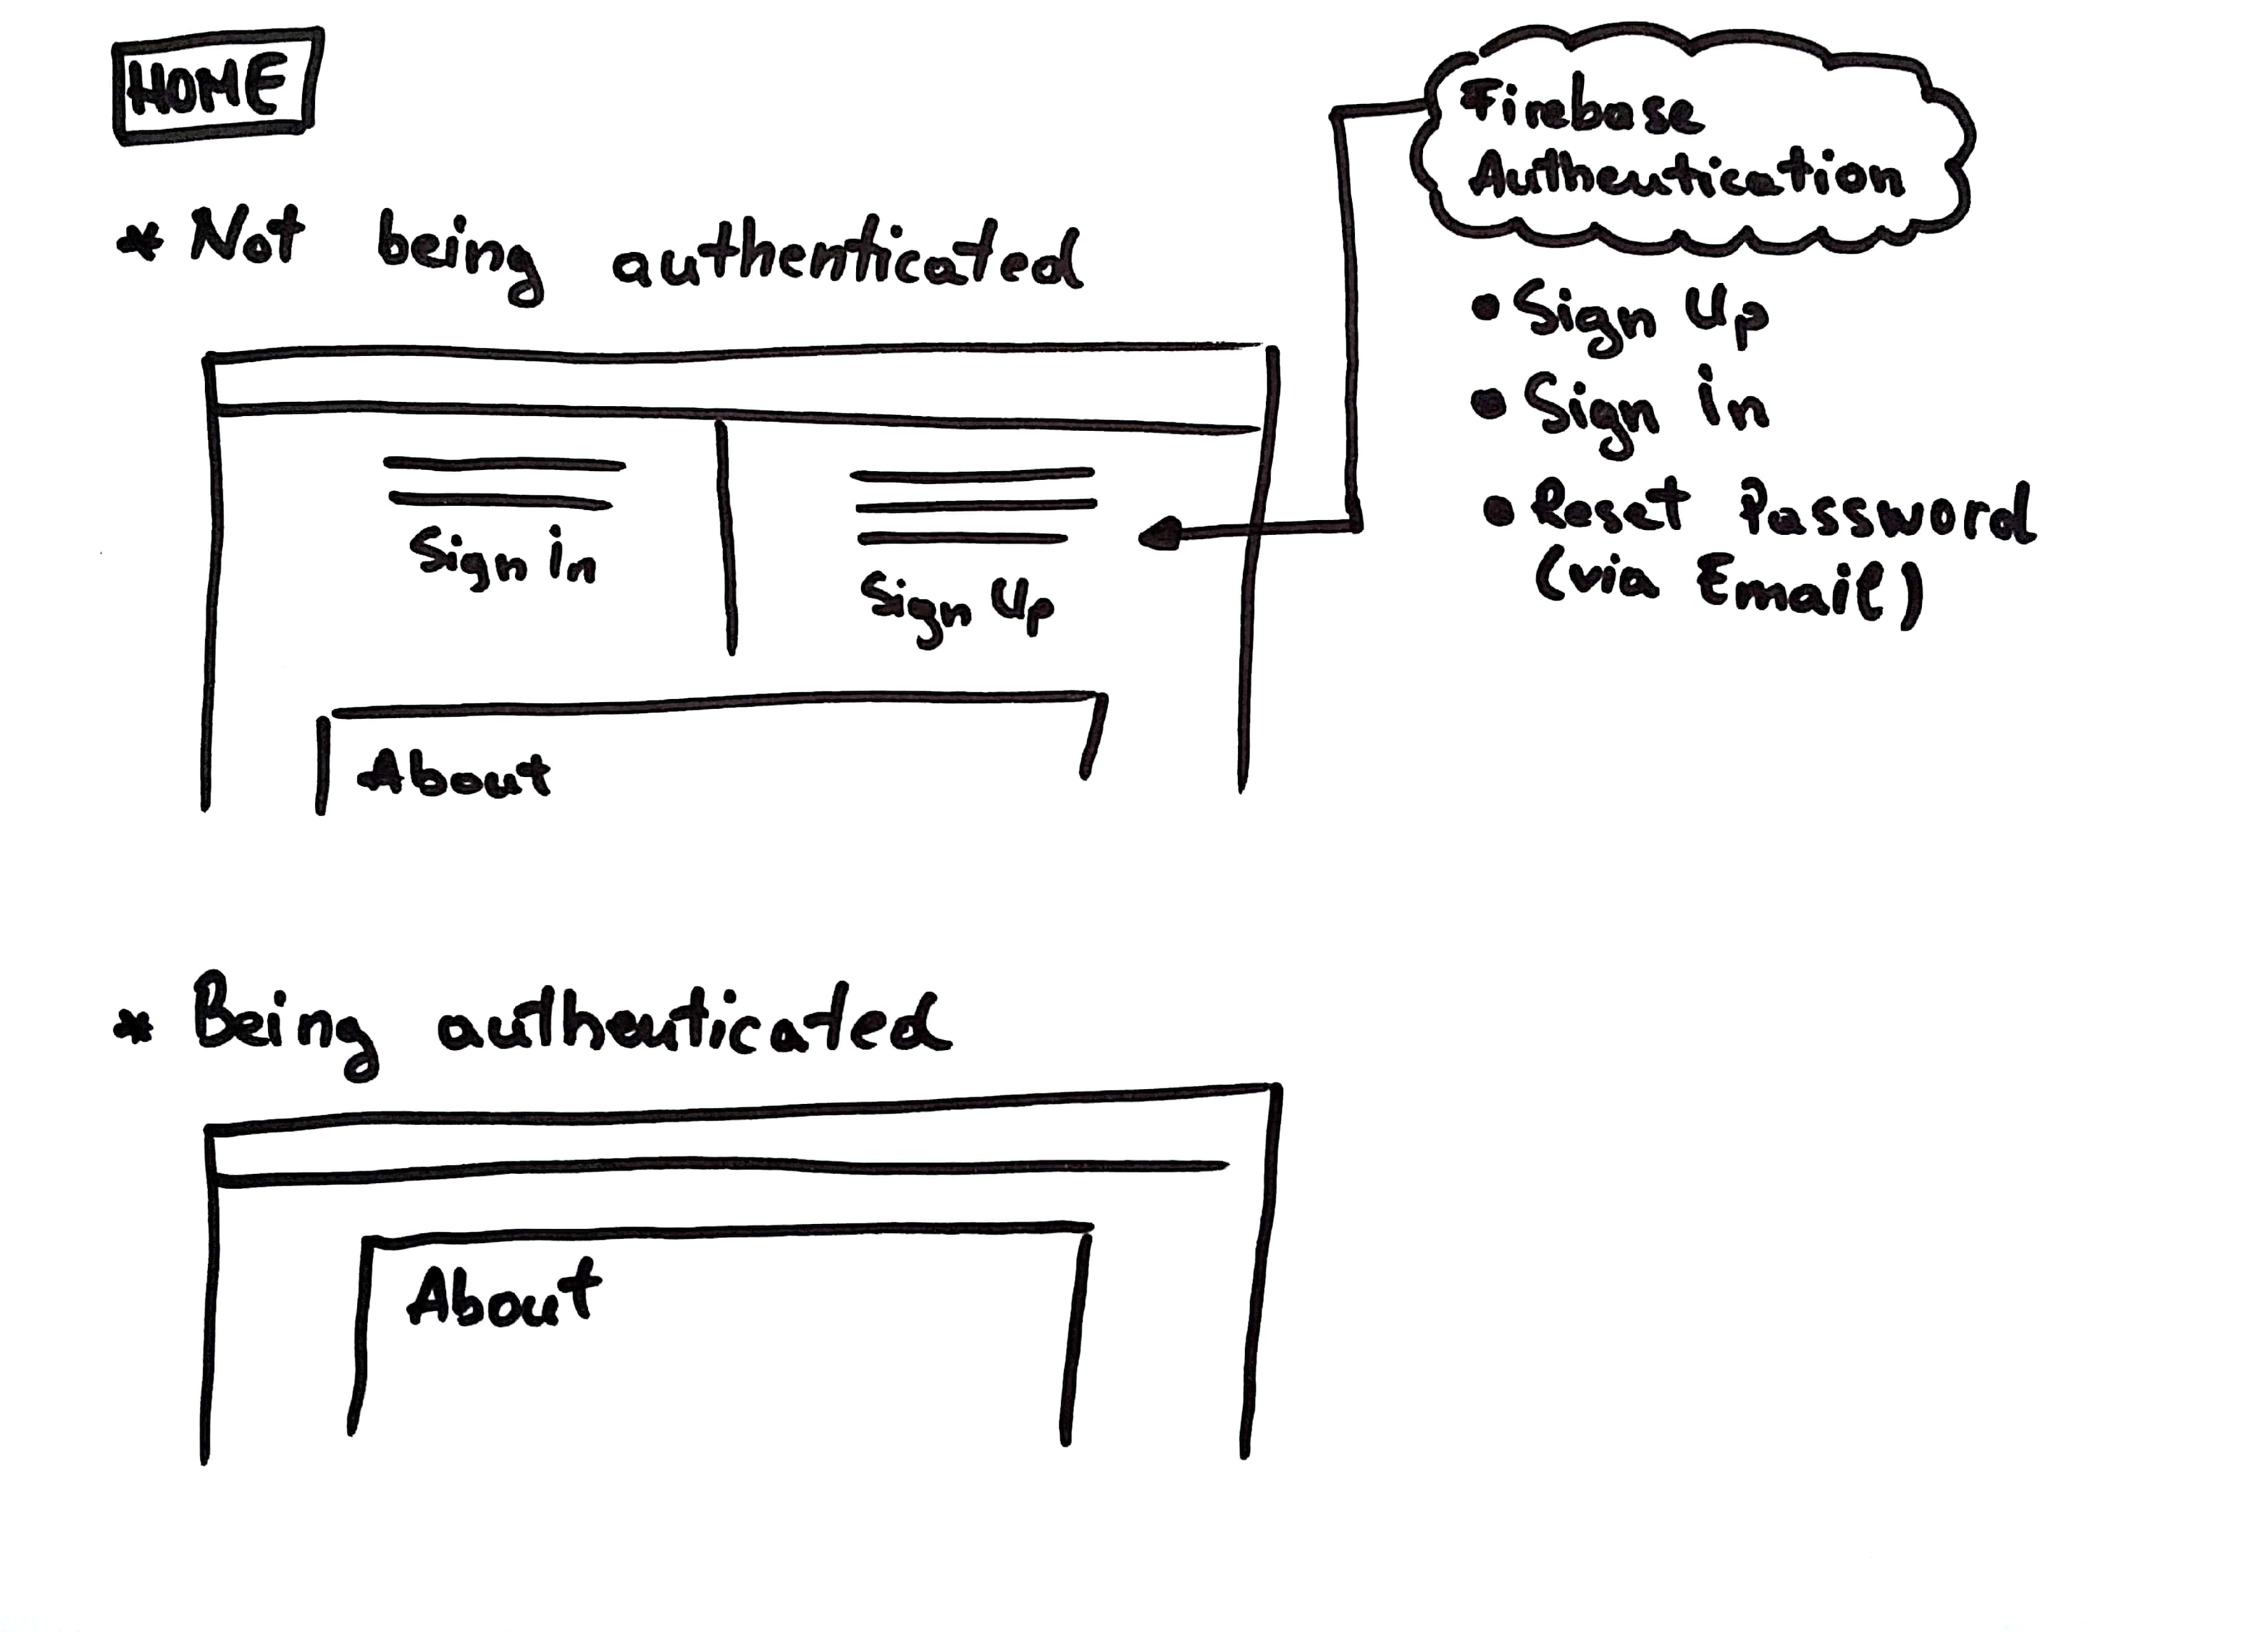 HOME
* Not being authenticated
Sign in
Sign Up
About
Firebase
Authentication
• Sign Up
• Sign in
• Reset Password
(via Email)
* Being authenticated
About